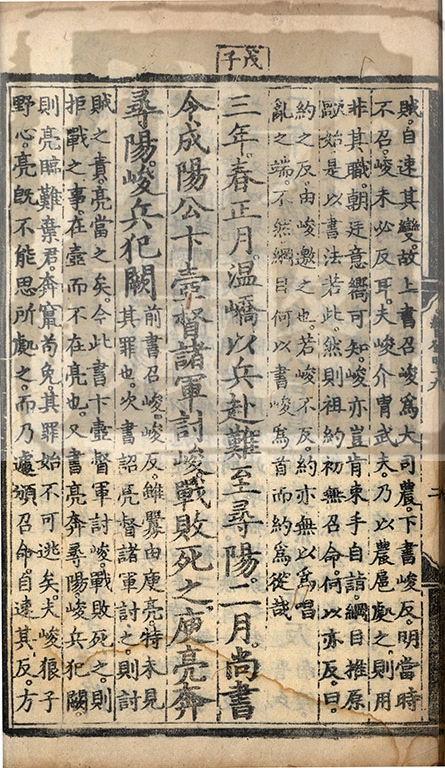 戊子
賊。自速其變。故上書召峻爲大司農。下書峻反。明當時
不召。峻未必反耳。夫峻介胄武夫。乃以農扈處之。則用
非其職。朝廷意嚮可知。峻亦豈肯束手自詣。綱目推原
厥始。是以書法若此。然則祖約初無召命。何以亦反。曰。
約之反。由峻邀之也。若峻不反。約亦無以爲唱
亂之端。不然。綱目何以書峻爲首而約爲從哉
三年。春正月。温嶠以兵赴難。至尋陽。二月。尚書
令成陽公卞壼督諸軍討峻。戰敗。死之。庾亮奔
尋陽。峻兵犯闕
前書召峻。峻反。雖釁由庾亮。特未見
其罪也。次書詔亮督諸軍討之。則討
賊之責。亮當之矣。今此書卞壼督軍討峻。戰敗。死之。則
拒戰之事。在壼而不在亮也。又書亮奔尋陽。峻兵犯闕。
則亮臨難棄君。奔竄苟免。其罪始不可逃矣。夫峻狼子
野心。亮旣不能思所處之。而乃遽頒召命。自速其反。方